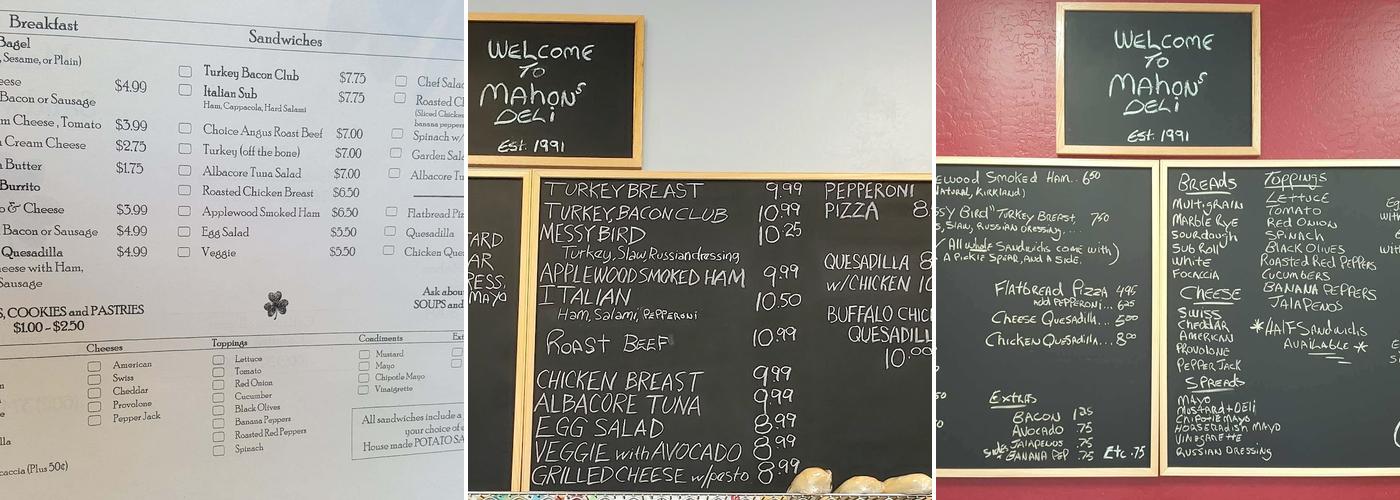 Breakfast
Bagel
, Sesame, or Plain)
eese $4.99
Bacon or Sausage
m Cheese, Tomato $3.99
Cream Cheese $2.75
Butter $1.75
Burrito
o & Cheese $3.99
Bacon or Sausage $4.99
Quesadilla $4.99
heese with Ham,
Sausage
S, COOKIES and PASTRIES
$1.00 - $2.50
Sandwiches
Turkey Bacon Club $7.75
Italian Sub $7.75
Ham, Cappacola, Hard Salami
Choice Angus Roast Beef $7.00
Turkey (off the bone) $7.00
Albacore Tuna Salad $7.00
Roasted Chicken Breast $6.50
Applewood Smoked Ham $6.50
Egg Salad $5.50
Veggie $5.50
Chef Salad
Roasted Ch
(Sliced Chicken
banana peppers
Spinach w/
Garden Sala
Albacore Tu
Flatbread Piz
Quesadilla
Chicken Que
Ask abou
SOUPS and
Cheeses
American
Swiss
Cheddar
Provolone
Pepper Jack
Toppings
Lettuce
Tomato
Red Onion
Cucumber
Black Olives
Banana Peppers
Roasted Red Peppers
Spinach
Condiments
Mustard
Mayo
Chipotle Mayo
Vinaigrette
Ext
All sandwiches include a
your choice of
House made POTATO SA
lla
caccia (Plus 50¢)
WELCOME
TO
MAHON'S
DELI
Est. 1991
TARD
AR
RESS,
MAYO
TURKEY BREAST 9.99
TURKEY, BACON CLUB 10.99
MESSY BIRD 10.25
Turkey, Slaw, Russian dressing
APPLEWOOD SMOKED HAM 9.99
ITALIAN 10.50
Ham, Salami, PEPPERONI
ROAST BEEF 10.99
CHICKEN BREAST 9.99
ALBACORE TUNA 9.99
EGG SALAD 8.99
VEGGIE with AVOCADO 8.99
GRILLED CHEESE w/pesto 8.99
PEPPERONI
PIZZA 8
QUESADILLA 8
w/CHICKEN 10
BUFFALO CHIC
QUESADILL
10.00
WELCOME
TO
MAHON'S
DELI
Est. 1991
ewood Smoked Ham.. 6.50
Natural, Kirkland)
ssy Bird" Turkey Breast, 7.50
s, Slaw, Russian Dressing....
(All whole Sandwichs come with)
A Pickle Spear, and A side.
Flatbread Pizza 4.95
add PEPPERONI... 6.25
Cheese Quesadilla... 5.00
Chicken Quesadilla... 8.00
Extras
BACON 1.25
AVOCADO .75
JALAPENOS .75
BANANA PEP .75 Etc .75
BREADS
Multi.grain
Marble Rye
Sourdough
Sub Roll
White
Focaccia
CHEESE
SWISS
Cheddar
AMERICAN
PROVOLONE
PEPPER JACK
SPREADS
MAYO
Mustard + DELI
Chipotle Mayo
HORSERADISH MAYO
VINEGARETTE
RUSSIAN DRESSING
TOPPINGS
LETTUCE
TOMATO
RED ONION
SPINACH
BLACK OLIVES
Roasted Red PEPPERS
CUCUMBERS
BANANA PEPPERS
JALAPENOS
*HALF Sandwichs
AVAILABLE *